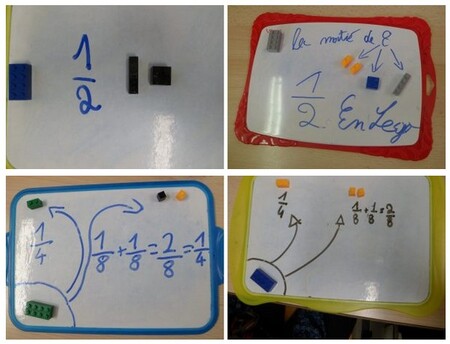 1/2
La moitié de 8
1/2 En Lego
1/4
1/8 + 1/8 = 2/8 = 1/4
1/4
1/8 + 1/8 = 2/8